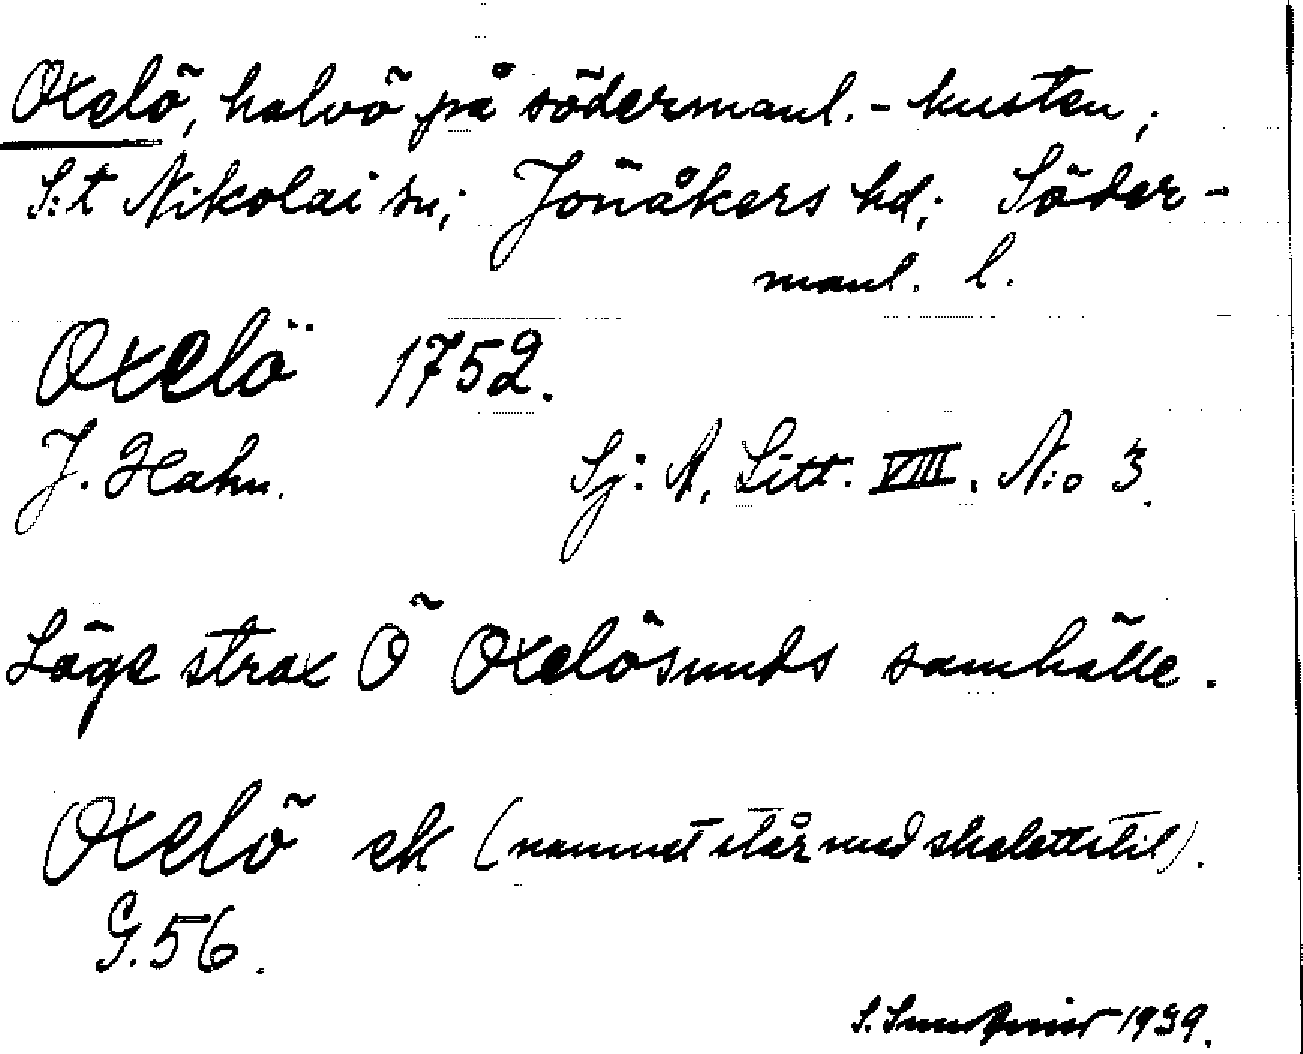 Oxelö, halvö på södermanl.-kusten;
S:t Nikolai sn; Jönåkers hd; Söder-
manl. l.
Oxelö 1752.
J. Hahn. Sj: A. Litt. VIII. N:o 3.
Läge strax Ö Oxelösunds samhälle.
Oxelö ek (namnet står med skelettstil).
G. 56.
S. 1939.